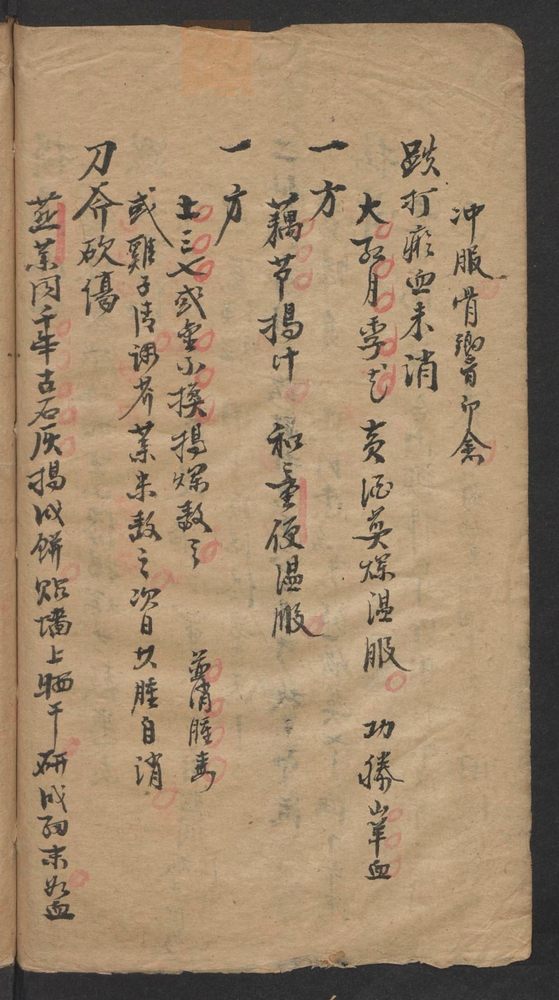 冲服骨響即愈
跌打瘀血未消
大紅月季花 煮酒 燉 温服 功勝山羊血
一方
藕节搗汁 和童便温服
一方
土三七或 搗爛敷之 並消腫毒
或雞子清調芥菜末敷之次日其腫自消
刀斧砍傷
韭菜同千年古石灰搗成餅貼墙上晒干研成細末如血